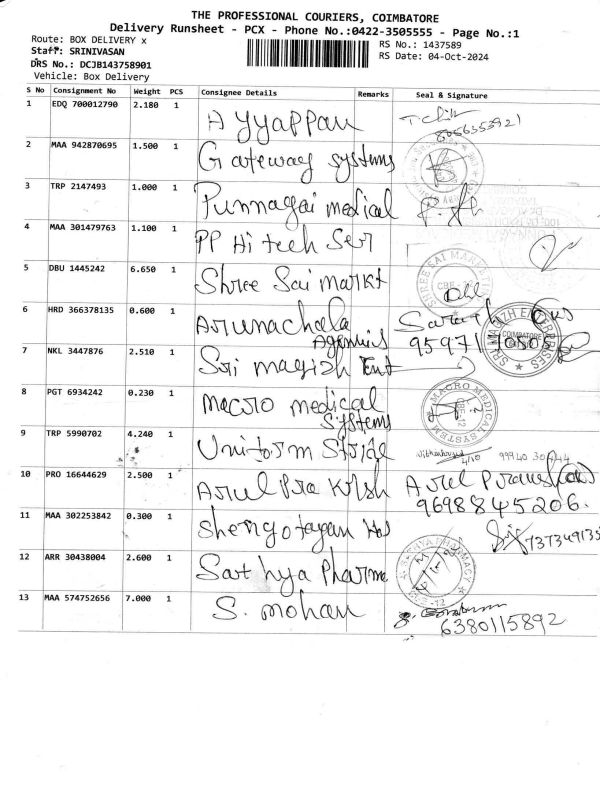 THE PROFESSIONAL COURIERS, COIMBATORE
Delivery Runsheet - PCX - Phone No.:0422-3505555 - Page No.:1
Route: BOX DELIVERY x
RS No.: 1437589
Staff: SRINIVASAN
RS Date: 04-Oct-2024
DRS No.: DCJB143758901
Vehicle: Box Delivery
S No Consignment No Weight PCS Consignee Details Remarks Seal & Signature
1 EDQ 700012790 2.180 1 Ayyappan 8056553921
2 MAA 942870695 1.500 1 Gateway systems
3 TRP 2147493 1.000 1 Punnagai medical
4 MAA 301479763 1.100 1 PP Hi tech Ser
5 DBU 1445242 6.650 1 Shree Sai markt
SHREE SAI MARKET
6 HRD 366378135 0.600 1 Arunachala Agencies
COIMBATORE
7 NKL 3447876 2.510 1 Sri magizh Ent
8 PGT 6934242 0.230 1 macro medical systems
MACRO MEDICAL SYSTEM
CBE-12
9 TRP 5990702 4.240 1 Uniform Stride
4/10
10 PRO 16644629 2.500 1 Arul Pra Krish
9698845206.
11 MAA 302253842 0.300 1 Shengotayan
737349135
12 ARR 30438004 2.600 1 Sathya Pharma
13 MAA 574752656 7.000 1 S. mohan
6380115892